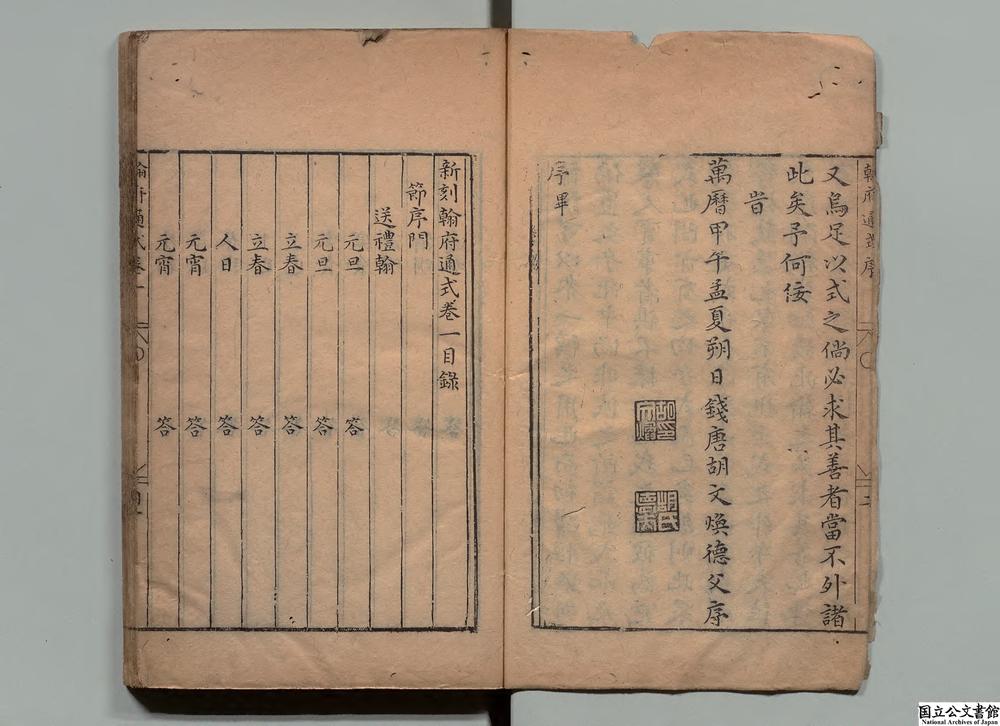 又烏足以式之倘必求其善者當不外諸
此矣予何佞
旹
萬曆甲午孟夏朔日錢唐胡文煥德父序
序畢
新刻翰府通式卷一目錄
節序門
送禮翰
元旦 答
元旦 答
立春 答
立春 答
人日 答
元宵 答
元宵 答
国立公文書館
National Archives of Japan